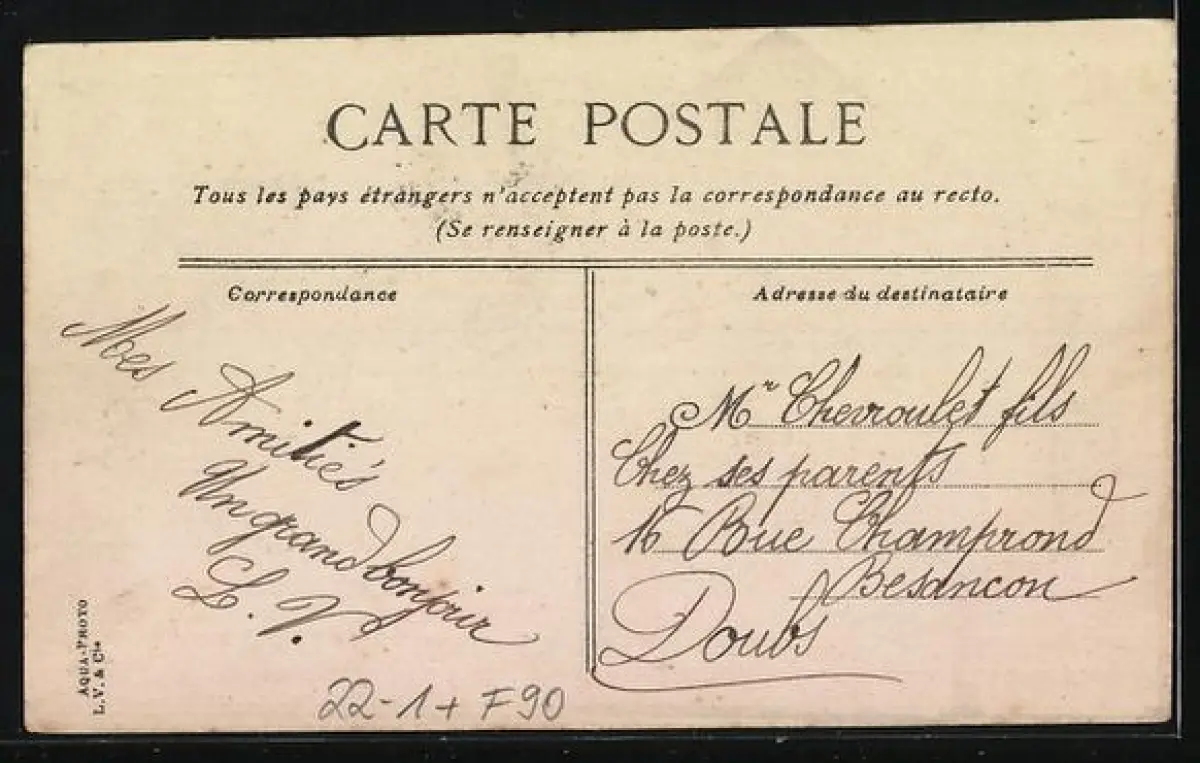 CARTE POSTALE
Tous les pays étrangers n'acceptent pas la correspondance au recto.
(Se renseigner à la poste.)
Correspondance
Mes Amitiés
Un grand bonjour
L. V.
Adresse du destinataire
Mr Chevroulet fils
Chez ses parents
16 Rue Champrond
Besancon
Doubs
AQUA-PHOTO
L.V. & Cie
22-1+ F90